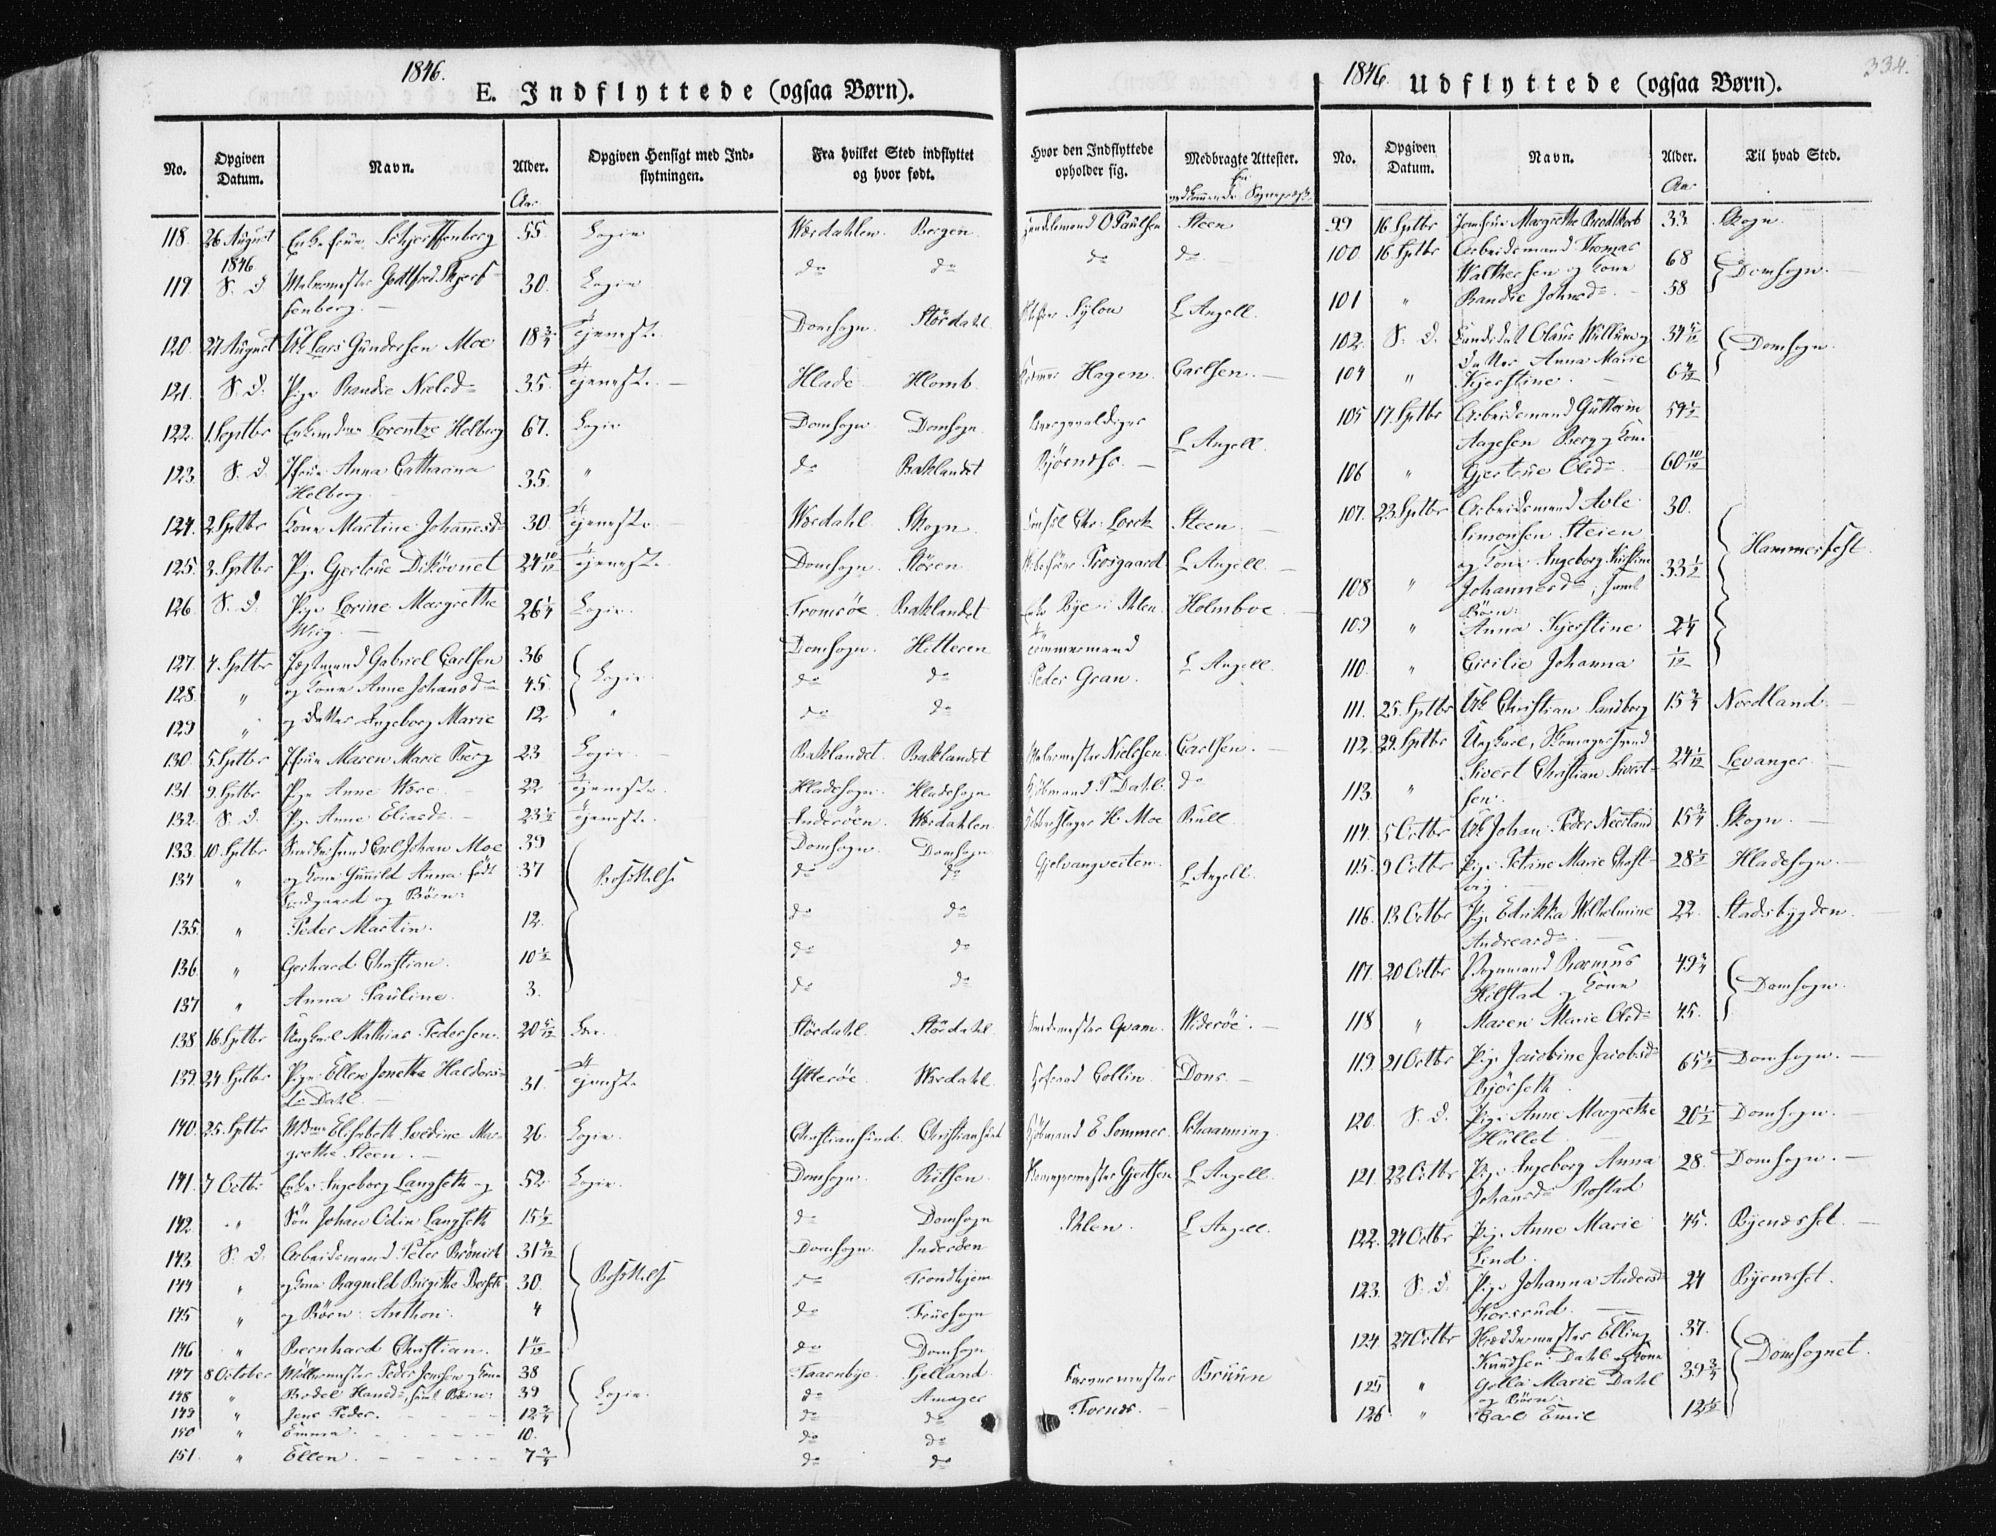 1846.
E. Indflyttede (ogsaa Børn).
No. Opgiven Datum. Navn. Alder. Aar Opgiven Hensigt med Indflytningen. Fra hvilket Sted indflyttet og hvor født. Hvor den Indflyttede opholder sig. Medbragte Attester.
118. 26 August 1846 Enkefrue 55 Logie Wærdahlen Bergen O Paulsen Steen
119. S. D. 30. Logie do do do do
120. 27 August Uk Lars Gundersen Moe 18 3/4 Tjeneste Domsogn. Stördahl Sylow L Angell.
121. S. D. Pige Randie Nielsd 35. Tjeneste. Hlade Hlomb. Hagen. Carlsen.
122. 1. Septbr Lorentze Helberg 67. Logie Domsogn Domsogn L Angell.
123. S. D. Jfrue Anna Catharina Helberg. 35. " do Baklandet
124. 2. Septbr Kone Martine Johannesd 30. Tjeneste. Wærdahl Skogn Consul Chr: Lorck Steen
125. 3. Septbr Pige Gjertrue 24 10/12 Tjeneste Domsogn. Stören. L Angell.
126 S. D. Pige Lorine Margrethe 26 1/4 Logie Tromsöe Baklandet Enke Bye i Ihlen. Holmboe
127. 4. Septbr Gabriel Carlsen 36 Logie. Domsogn. Hitteren Tömmermand Peder Gran. L Angell.
128. " og Kone Anne Johansd 45. do do
129 " og Datter Ingeborg Marie 12 " do do
130. 5. Septbr Jfrue Maren Marie Berg 23 Logie Baklandet Baklandet Nielsen. Carlsen.
131 9 Septbr Pige Anne 22 Tjeneste. Hladesogn. Hladesogn Kjöbmand P Dahl. do
132. S. D. Pige Anne Eliasd 23 1/2 Tjeneste. Inderöen. Wærdahlen. H. Moe Bull
133. 10. Septbr Johan Moe 39 Bosættelse Domsogn. Domsogn L Angell.
134 " og Kone Gunild Anna født og Børn: 37 do do
135. " Peder Martin. 12. do do
136. " Gerhard Christian. 10 1/2 do do
137 " Anna Pauline. 3. do do
138 16. Septbr Ungkarl Mathias Pedersen. 20 5/12 Lære. Stördahl Stördahl. Qvam. Widerøe.
139. 24. Septbr Pige Ellen Jonetta Haldorsd Dahl. 31. Tjeneste Ytteröe. Wærdahl. Collin. Dons
140. 25. Septbr Elisabeth Svedine Margrethe Steen. 26. Logie. Christiansund. Christiansund Kjöbmand E Sommer. Schaanning.
141. 7 Octbr Enke Ingeborg Langseth og 52 Logie. Domsogn Ritsen. Gjertsen L Angell.
142 " Sön Johan Odin Langseth 15 1/2 do Domsogn Ihlen. L Angell.
143. S. D. Arbeidsmand Peter 31 Bosættelse Domsogn Inderöen
144 " og Kone Ragnild Birgithe 30. do Trondhjem
145 " og Börn: Anthon. 4 do Fruesogn
146 " Bernhard Christian. do Domsogn
147 8 October Möllermester Peder Jensen og Kone 38 Logie. Taarnbye. Gelland. Farvermester Bruun
148 " Bodel Hansd, samt Børn: 39 do Amager Foenss.
149 " Jens Peder. 12 3/4 do do
150 " Emma. 10. do do
151. " Ellen. 7 3/4 do do
334.
1846. Udflyttede (ogsaa Børn).
No. Opgiven Datum. Navn. Alder. Aar Til hvad Sted.
99 16 Septbr Jomfrue Margrethe Bredtkorb 33 Skogn
100 16 Septbr Arbeidsmand Thomas Walthersen og Kone 68 Domsogn.
101 " Randie Johnsd 58
102. S. D. Candidat Olaus Willum og 34 Domsogn.
104 " Datter Anna Marie Kjerstine. 6
105 17. Septbr Arbeidsmand Guttorm Aagesen Berg og Kone 59 1/2
106 " Gjertrue Olsd 60 10/12
107. 23. Septbr Arbeidsmand Avle Simonsen Steien 30. Hammerfest.
108 " og Kone Ingeborg Kirstine Johannesd, samt Børn: 33 1/2
109 " Anna Kjerstine 2 1/4
110. " Cicilie Johanna 1/12
111. 25. Septbr Uk Christian Sandberg 15 3/4 Nordland.
112. 29. Septbr Ungkarl, Skomagersvend Sivert Christian Sivertsen. Levanger
113. "
114. 5 Octbr Uk Johan Peder 15 3/4 Skogn.
115. 9 Octbr Pige Petrine Marie 28 1/2 Hladesogn.
116. 13 Octbr Pige Edrikka Wilhelmine Andreasd 22. Stadsbygden.
117. 20 Octbr Vognmand Rasmus Hilstad og Kone 49 3/4 Domsogn.
118 " Maren Marie Olsd 45.
119. 21 Octbr Pige Jacobine Jacobsd Björseth. 65 1/2 Domsogn.
120. S. D. Pige Anne Margrethe Hullet. 20 1/2 Domsogn.
121. 22 Octbr Pige Ingeborg Anna Johansd Rostad 28. Domsogn.
122. 24 Octbr Pige Anne Marie Lind. 45. Byenesset.
123. S. D. Pige Johanna Andersd Korsrud. 24 Byenesset.
124. 27 Octbr Skræddermester Elling Knudsen Dahl og Kone 37. Domsognet.
125 " Golla Marie Dahl og Børn: 39 3/4
126 " Carl Emil